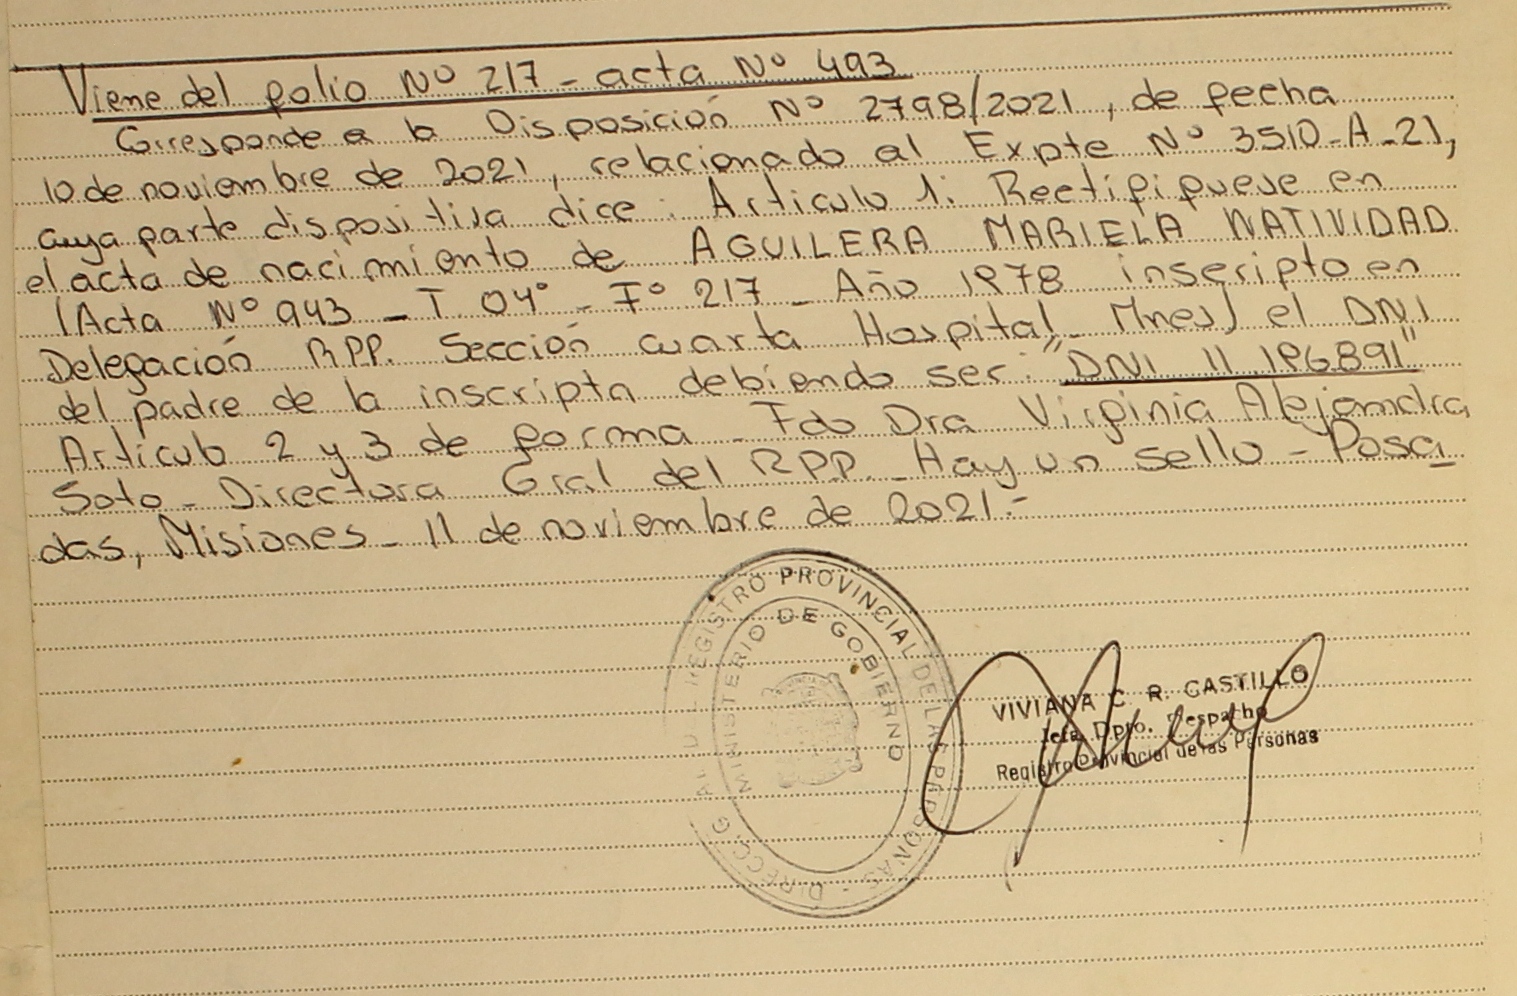 Viene del folio Nº 217 - acta Nº 493
Corresponde a la Disposición Nº 2798/2021, de fecha
10 de noviembre de 2021, relacionado al Expte Nº 3510-A-21,
cuya parte dispositiva dice: Articulo 1: Rectifiquese en
el acta de nacimiento de AGUILERA MARIELA NATIVIDAD
(Acta Nº 943 - T. 04º - Fº 217 - Año 1978 inscripto en
Delegación RPP. Sección cuarta Hospital - Mnes) el DNI
del padre de la inscripta debiendo ser: "DNI 11.196891"
Articulo 2 y 3 de forma - Fdo Dra Virginia Alejandra
Soto - Directora Gral del RPP. Hay un sello - Posa
das, Misiones - 11 de noviembre de 2021.-
REGISTRO PROVINCIAL DE LAS PERSONAS - DIRECC. G
MINISTERIO DE GOBIERNO
VIVIANA C. R. CASTILLO
Jefa Dpto. Despacho
Registro Provincial de las Personas